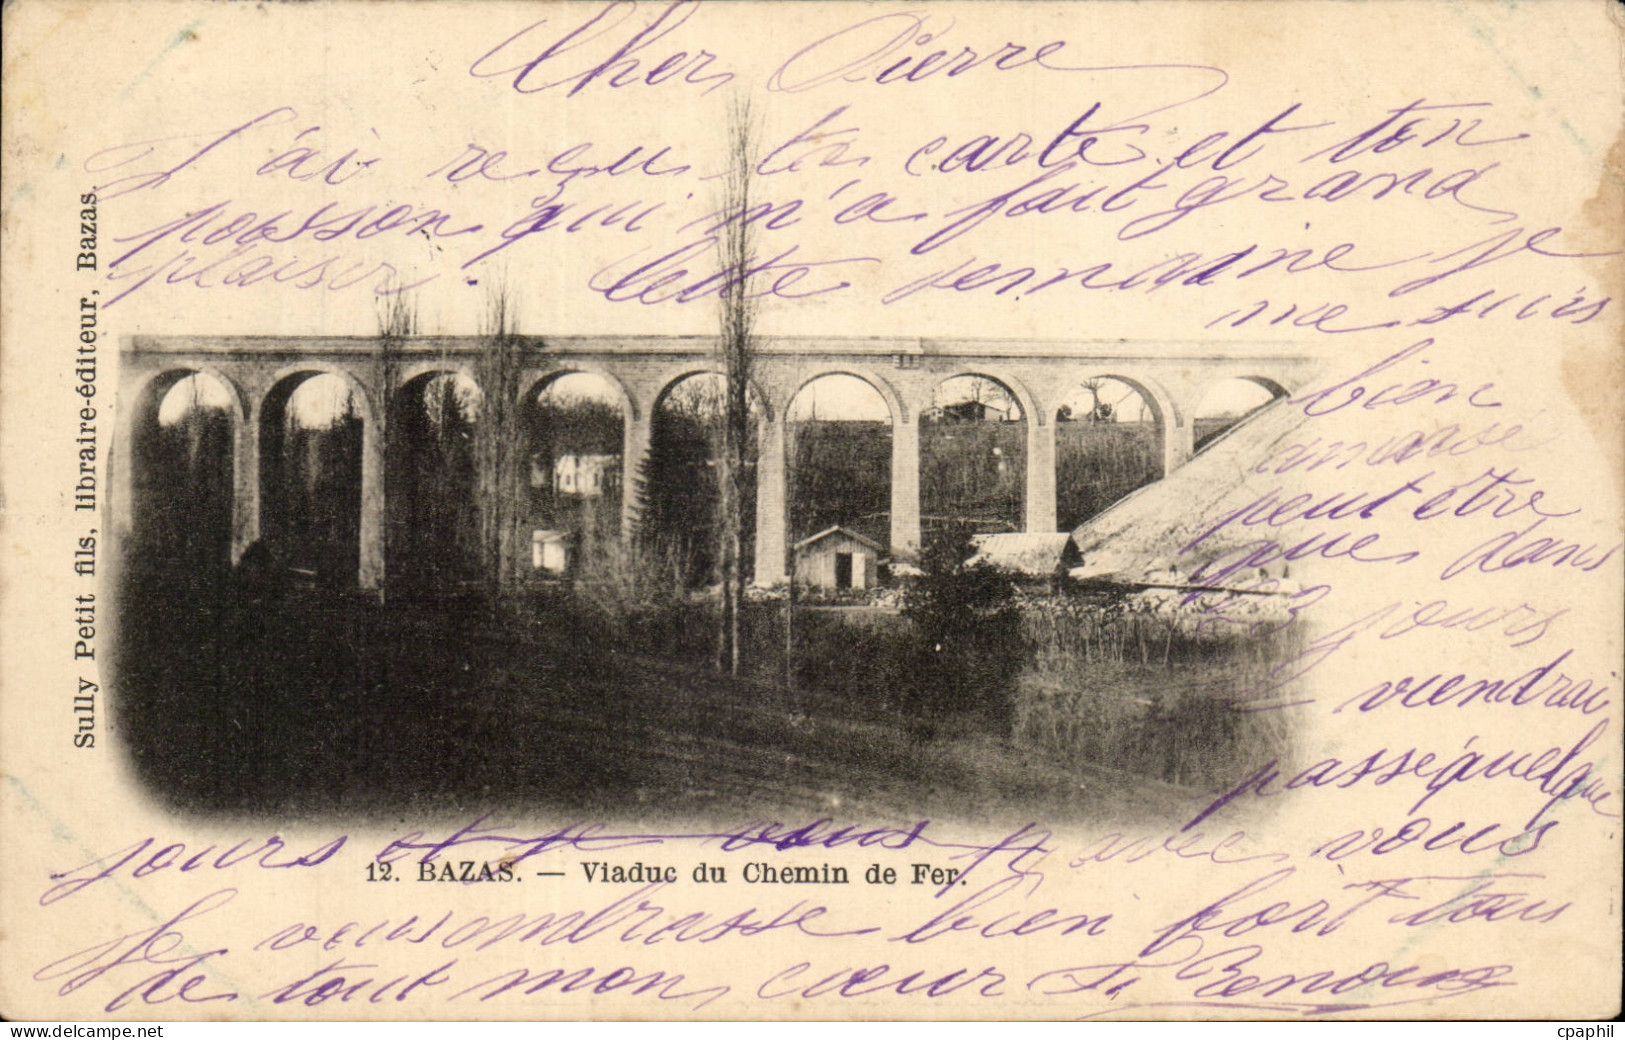 Cher Pierre
J'ai reçu ta carte et ton
poisson qui m'a fait grand
plaisir. Cette semaine je
me suis
bien
amusé
peut être
que dans
2 3 jours
viendrai
passé quelque
jours et je vous avec vous
Je vous embrasse bien fort tous
de tout mon cœur
12. BAZAS. — Viaduc du Chemin de Fer.
Sully Petit fils, libraire-éditeur, Bazas.
cpaphil